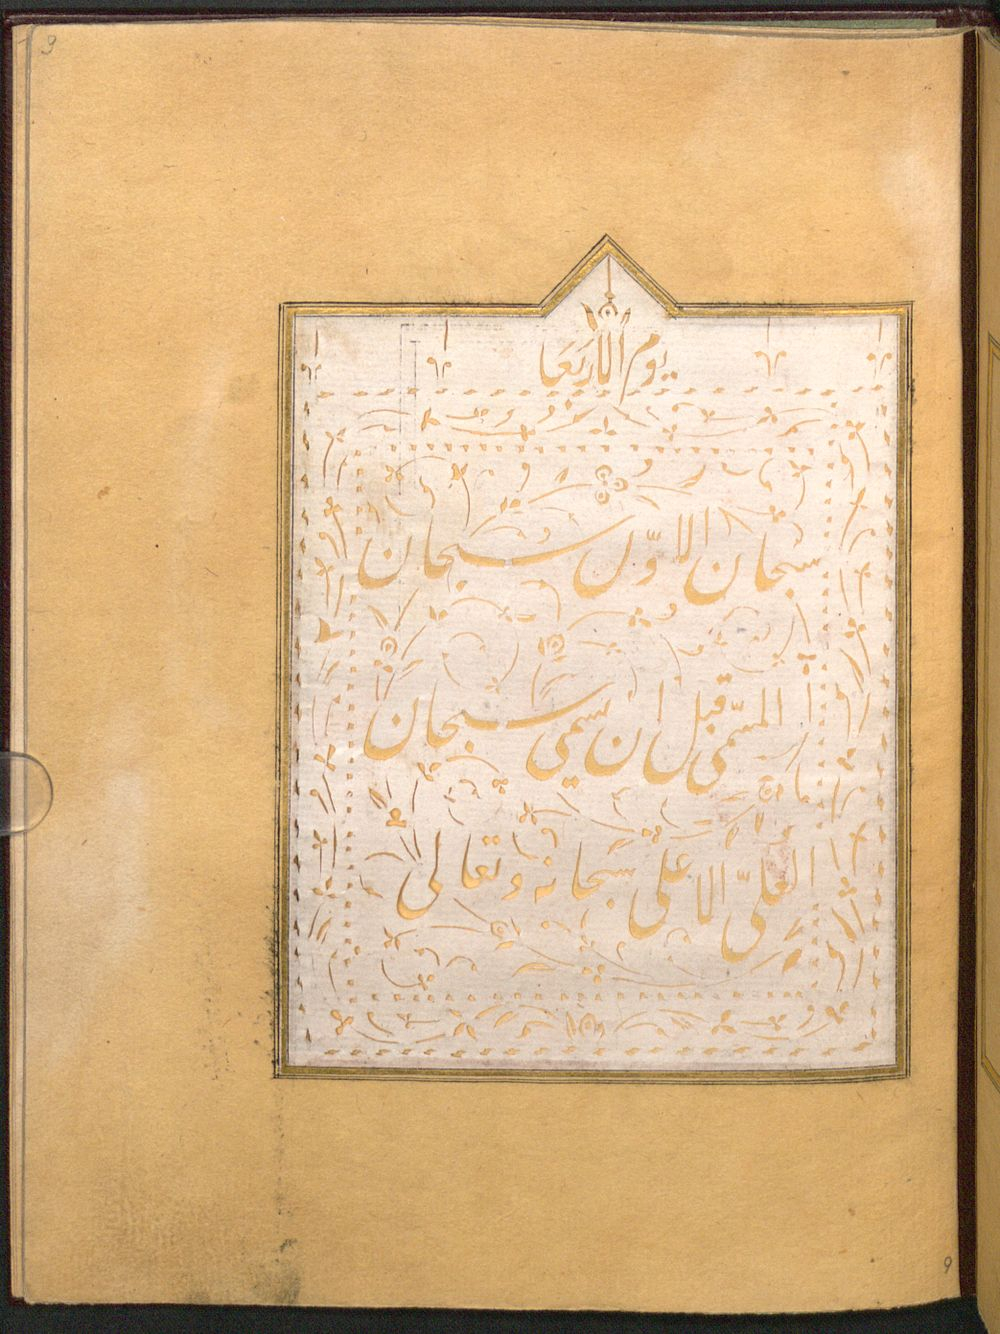 9
يوم الاربعا
سبحان الاوّل سبحان
المسمّى قبل ان يسمى سبحان
العلىّ الاعلى سبحانه وتعالى
9